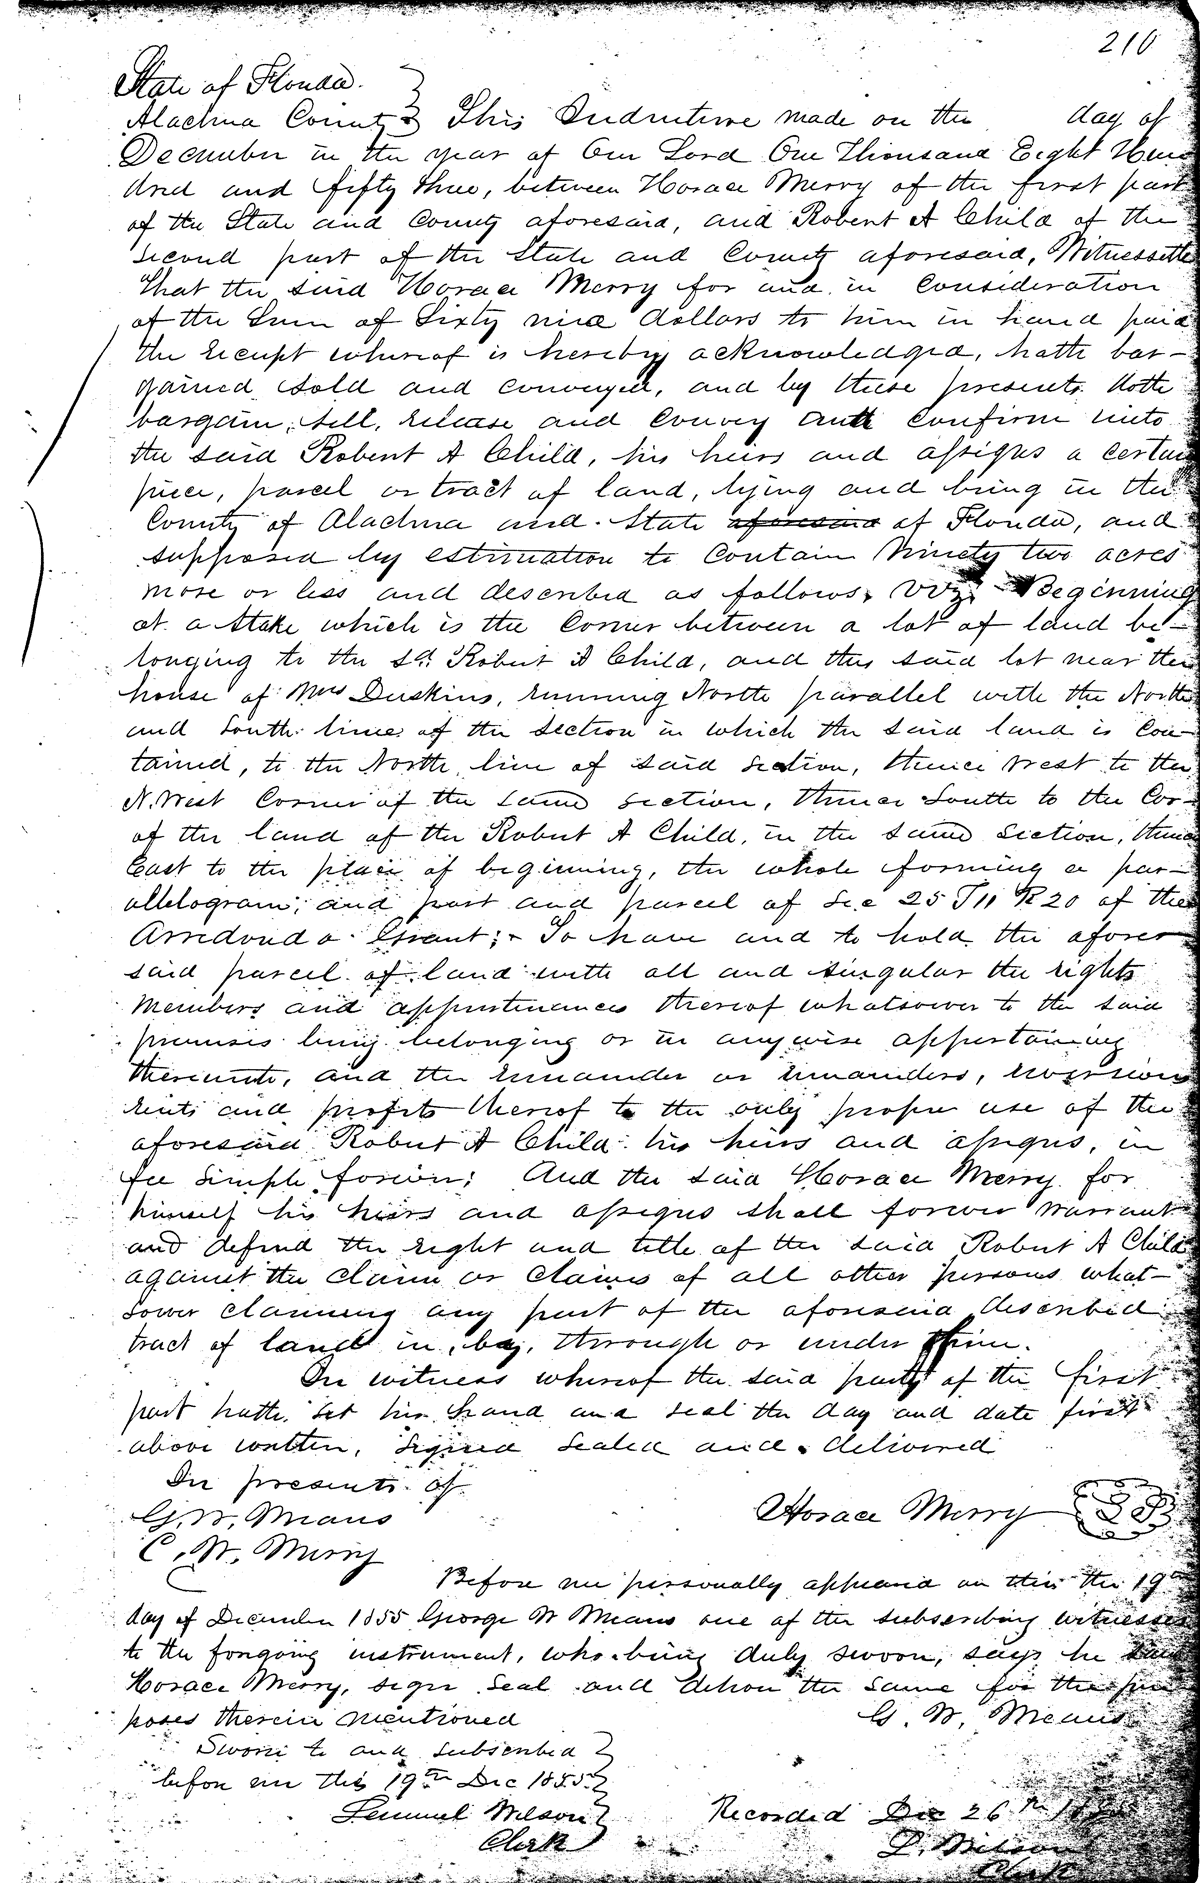 210
State of Florida.
Alachua County } This Indenture made on the day of
December in the year of Our Lord One Thousand Eight Hun
dred and fifty three, between Horace Merry of the first part
of the State and County aforesaid, and Robert A Child of the
second part of the State and County aforesaid, Witnesseth
that the said Horace Merry for and in Consideration
of the Sum of Sixty nine dollars to him in hand paid
the receipt whereof is hereby acknowledged, hath bar-
gained sold and conveyed, and by these presents doth
bargain, sell, release and convey and confirm unto
the said Robert A Child, his heirs and assigns a certain
piece, parcel or tract of land, lying and being in the
County of Alachua and State aforesaid of Florida, and
supposed by estimation to Contain Ninety two acres
more or less and described as follows, viz, - Beginning
at a Stake which is the Corner between a lot of land be-
longing to the sd. Robert A Child, and this said lot near the
house of Mrs Duskins, running North parallel with the North
and South line of the section in which the said land is Con-
tained, to the North line of said section, thence West to the
N. West Corner of the same section, thence South to the Cor-
of the land of the Robert A Child, in the same section, thence
East to the place of beginning, the whole forming a par-
allelogram; and part and parcel of Sec 25 T11 R20 of the
Arredondo Grant; - To have and to hold the afore
said parcel of land with all and singular the rights
members and appurtenances thereof whatsoever to the said
premises being belonging or in anywise appertaining
thereunto, and the remainder or remainders, reversion
rents and profits thereof to the only proper use of the
aforesaid Robert A Child his heirs and assigns, in
fee simple forever; And the said Horace Merry for
himself his heirs and assigns shall forever warrant
and defend the right and title of the said Robert A Child
against the claim or claims of all other persons what-
soever claiming any part of the aforesaid described
tract of land in, by, through or under him.
In witness whereof the said party of the first
part hath set his hand and seal the day and date first
above written, signed sealed and delivered
In presents of
G. W. Means
Horace Merry
C. W. Merry
Before me personally appeared on this the 19th
day of December 1855 George W Means one of the subscribing witnesses
to the forgoing instrument, who being duly sworn, says he saw
Horace Merry, sign seal and deliver the same for the pur
poses therein mentioned
G. W. Means
Sworn to and subscribed
before me this 19th Dec 1855
Lemuel Wilson
Clerk
Recorded Dec 26th
L. Wilson
Clerk